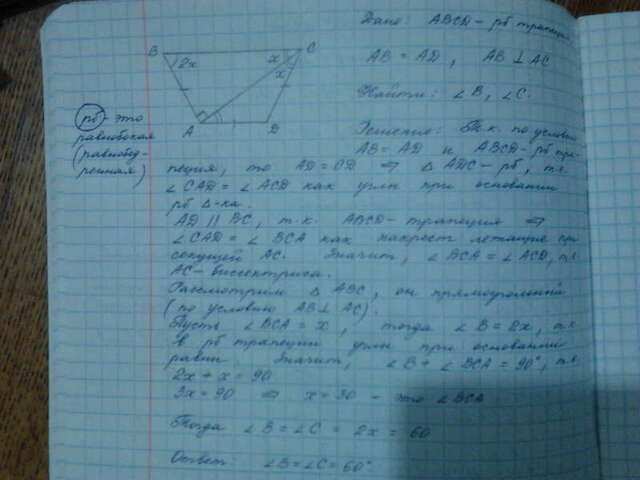 Дано: ABCD - рб трапеция
AB = AD, AB ⊥ AC
Найти: ∠B, ∠C.
B C
2x x
x
A D
рб - это
равнобокая
(равнобед-
ренная)
Решение: Т.к. по условию
AB = AD и ABCD - рб тра-
пеция, то AD = CD ⇒ △ ADC - рб, т.е.
∠CAD = ∠ACD как углы при основании
рб △-ка.
AD || BC, т.к. ABCD - трапеция ⇒
∠CAD = ∠BCA как накрест лежащие при
секущей AC. Значит, ∠BCA = ∠ACD, т.е.
AC - биссектриса.
Рассмотрим △ ABC, он прямоугольный
(по условию AB ⊥ AC).
Пусть ∠BCA = x, тогда ∠B = 2x, т.к.
в рб трапеции углы при основании
равны. Значит, ∠B + ∠BCA = 90°, т.е.
2x + x = 90
3x = 90 ⇒ x = 30 - это ∠BCA
Тогда ∠B = ∠C = 2x = 60
Ответ: ∠B = ∠C = 60°